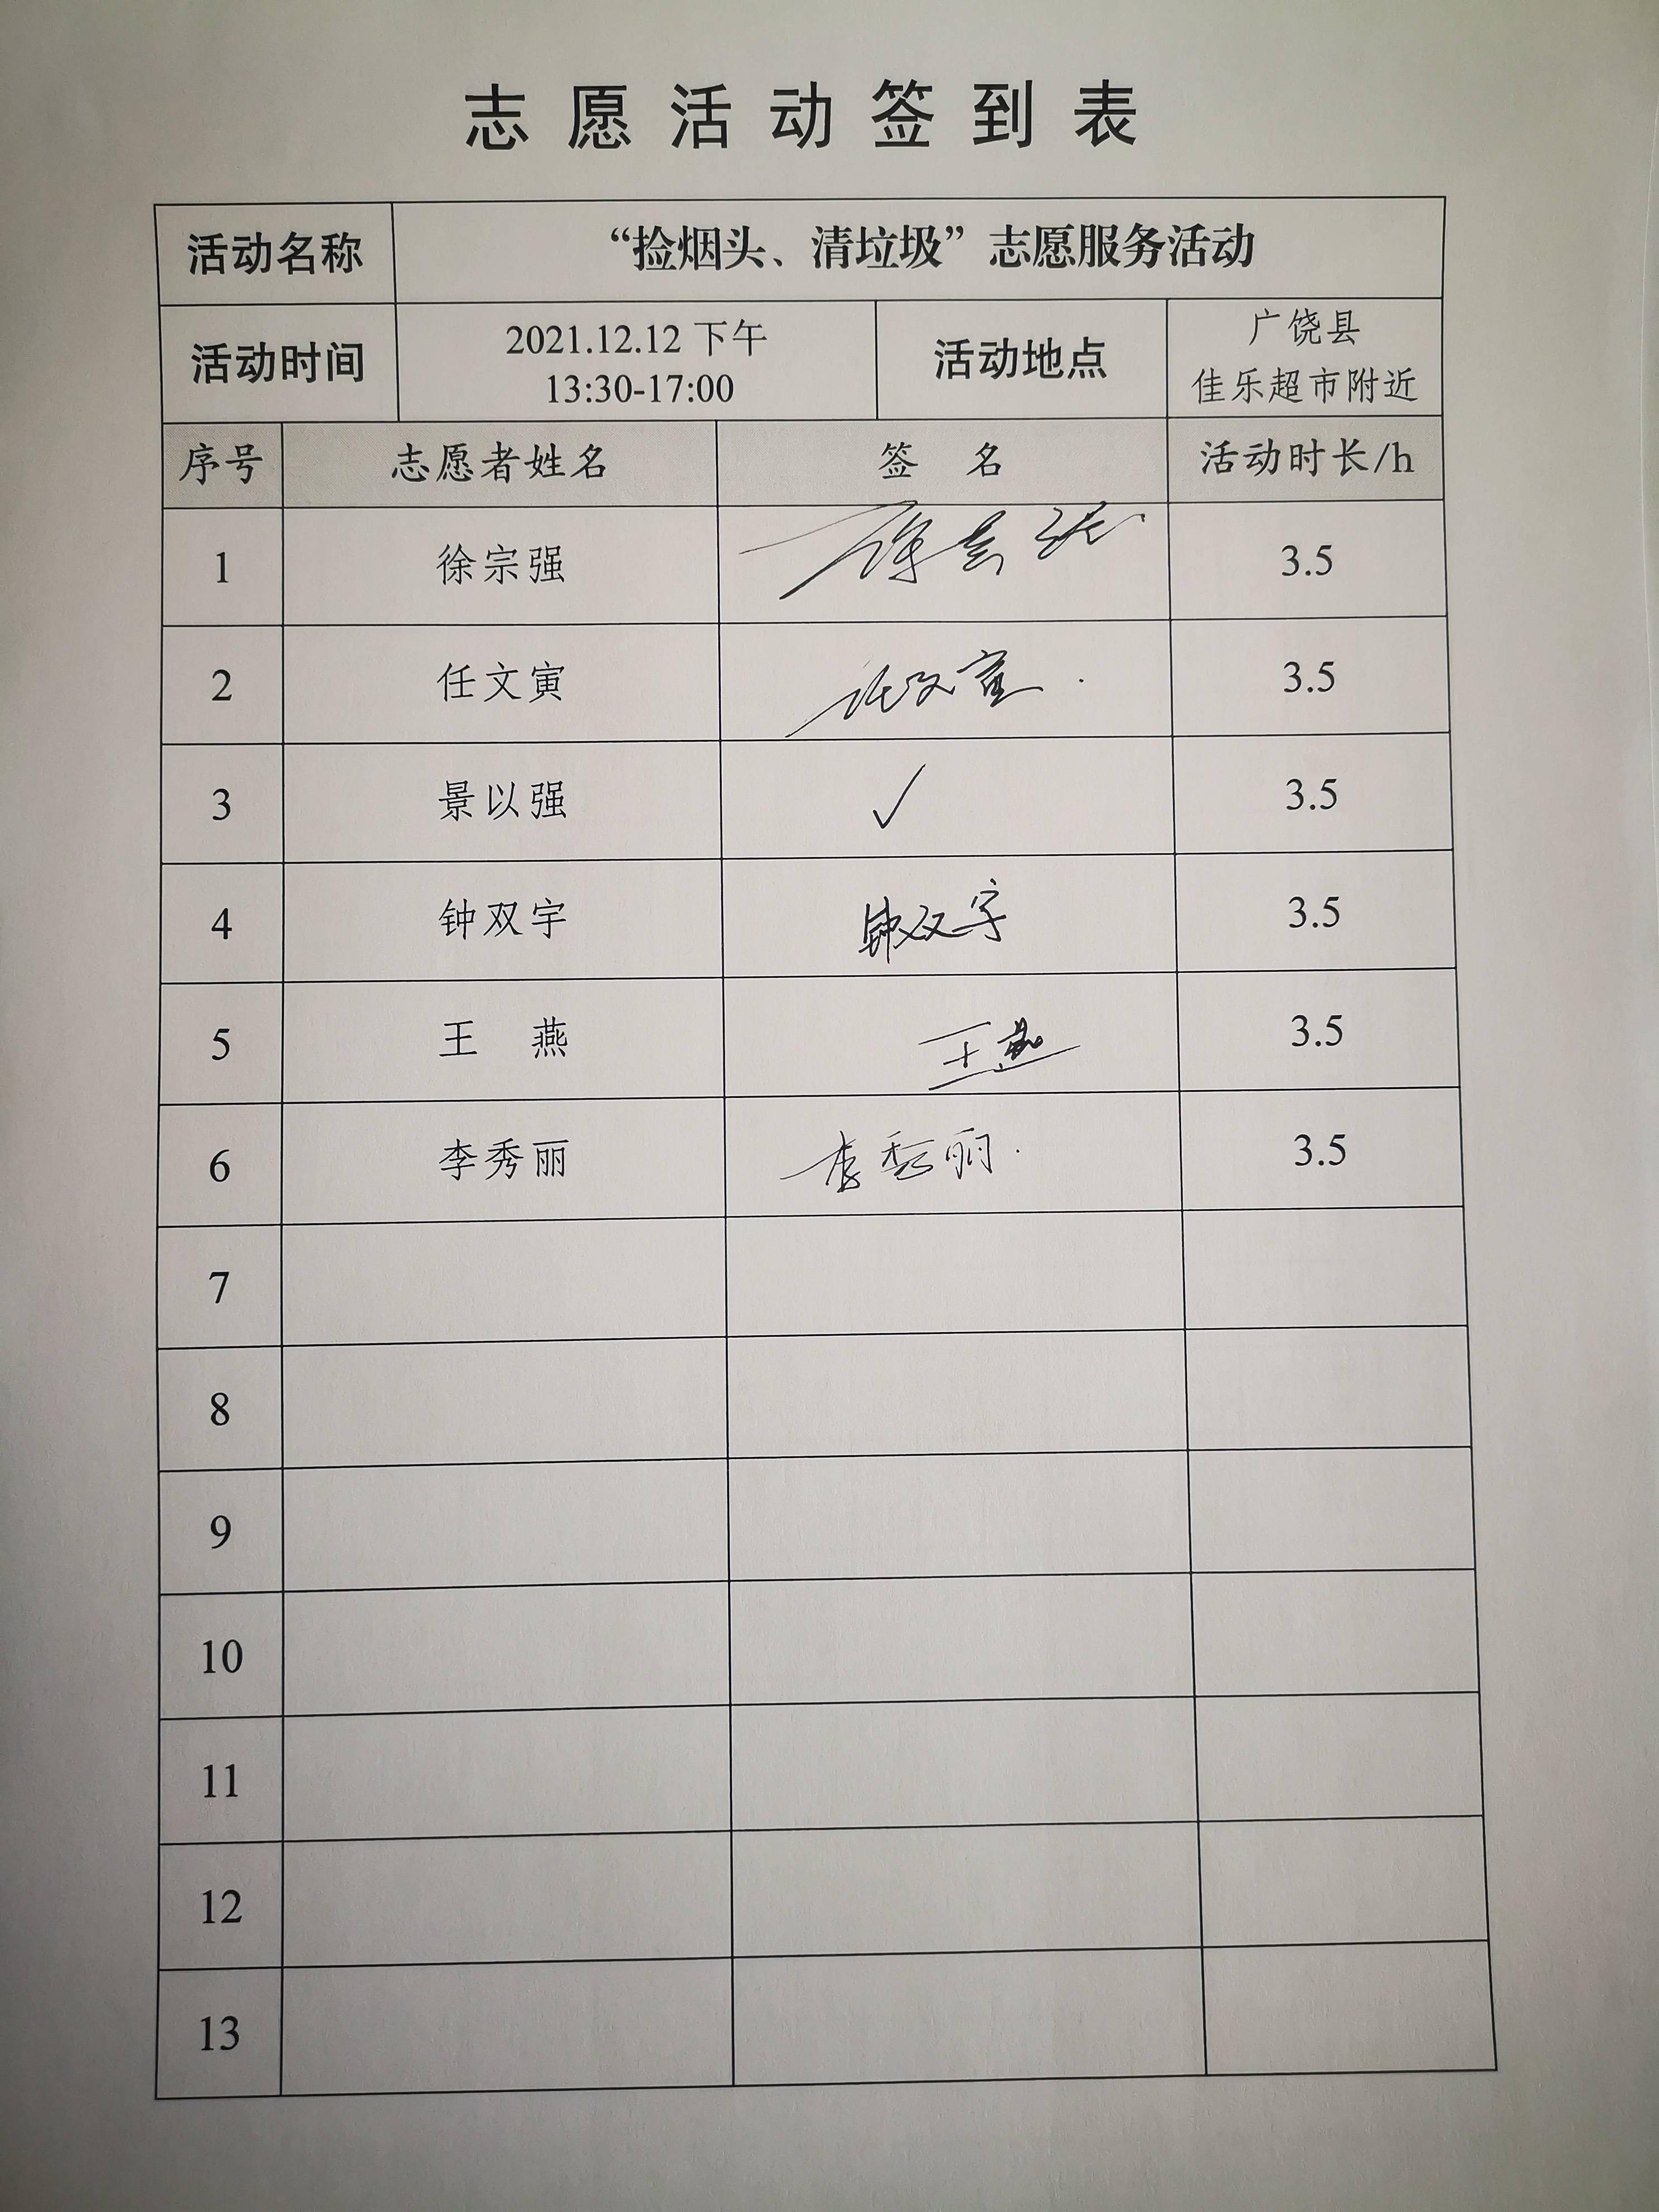 志愿活动签到表
活动名称 “捡烟头、清垃圾”志愿服务活动
活动时间 2021.12.12 下午 13:30-17:00 活动地点 广饶县 佳乐超市附近
序号 志愿者姓名 签 名 活动时长/h
1 徐宗强 徐宗强 3.5
2 任文寅 任文寅 3.5
3 景以强 ✓ 3.5
4 钟双宇 钟双宇 3.5
5 王 燕 王燕 3.5
6 李秀丽 李秀丽 3.5
7
8
9
10
11
12
13